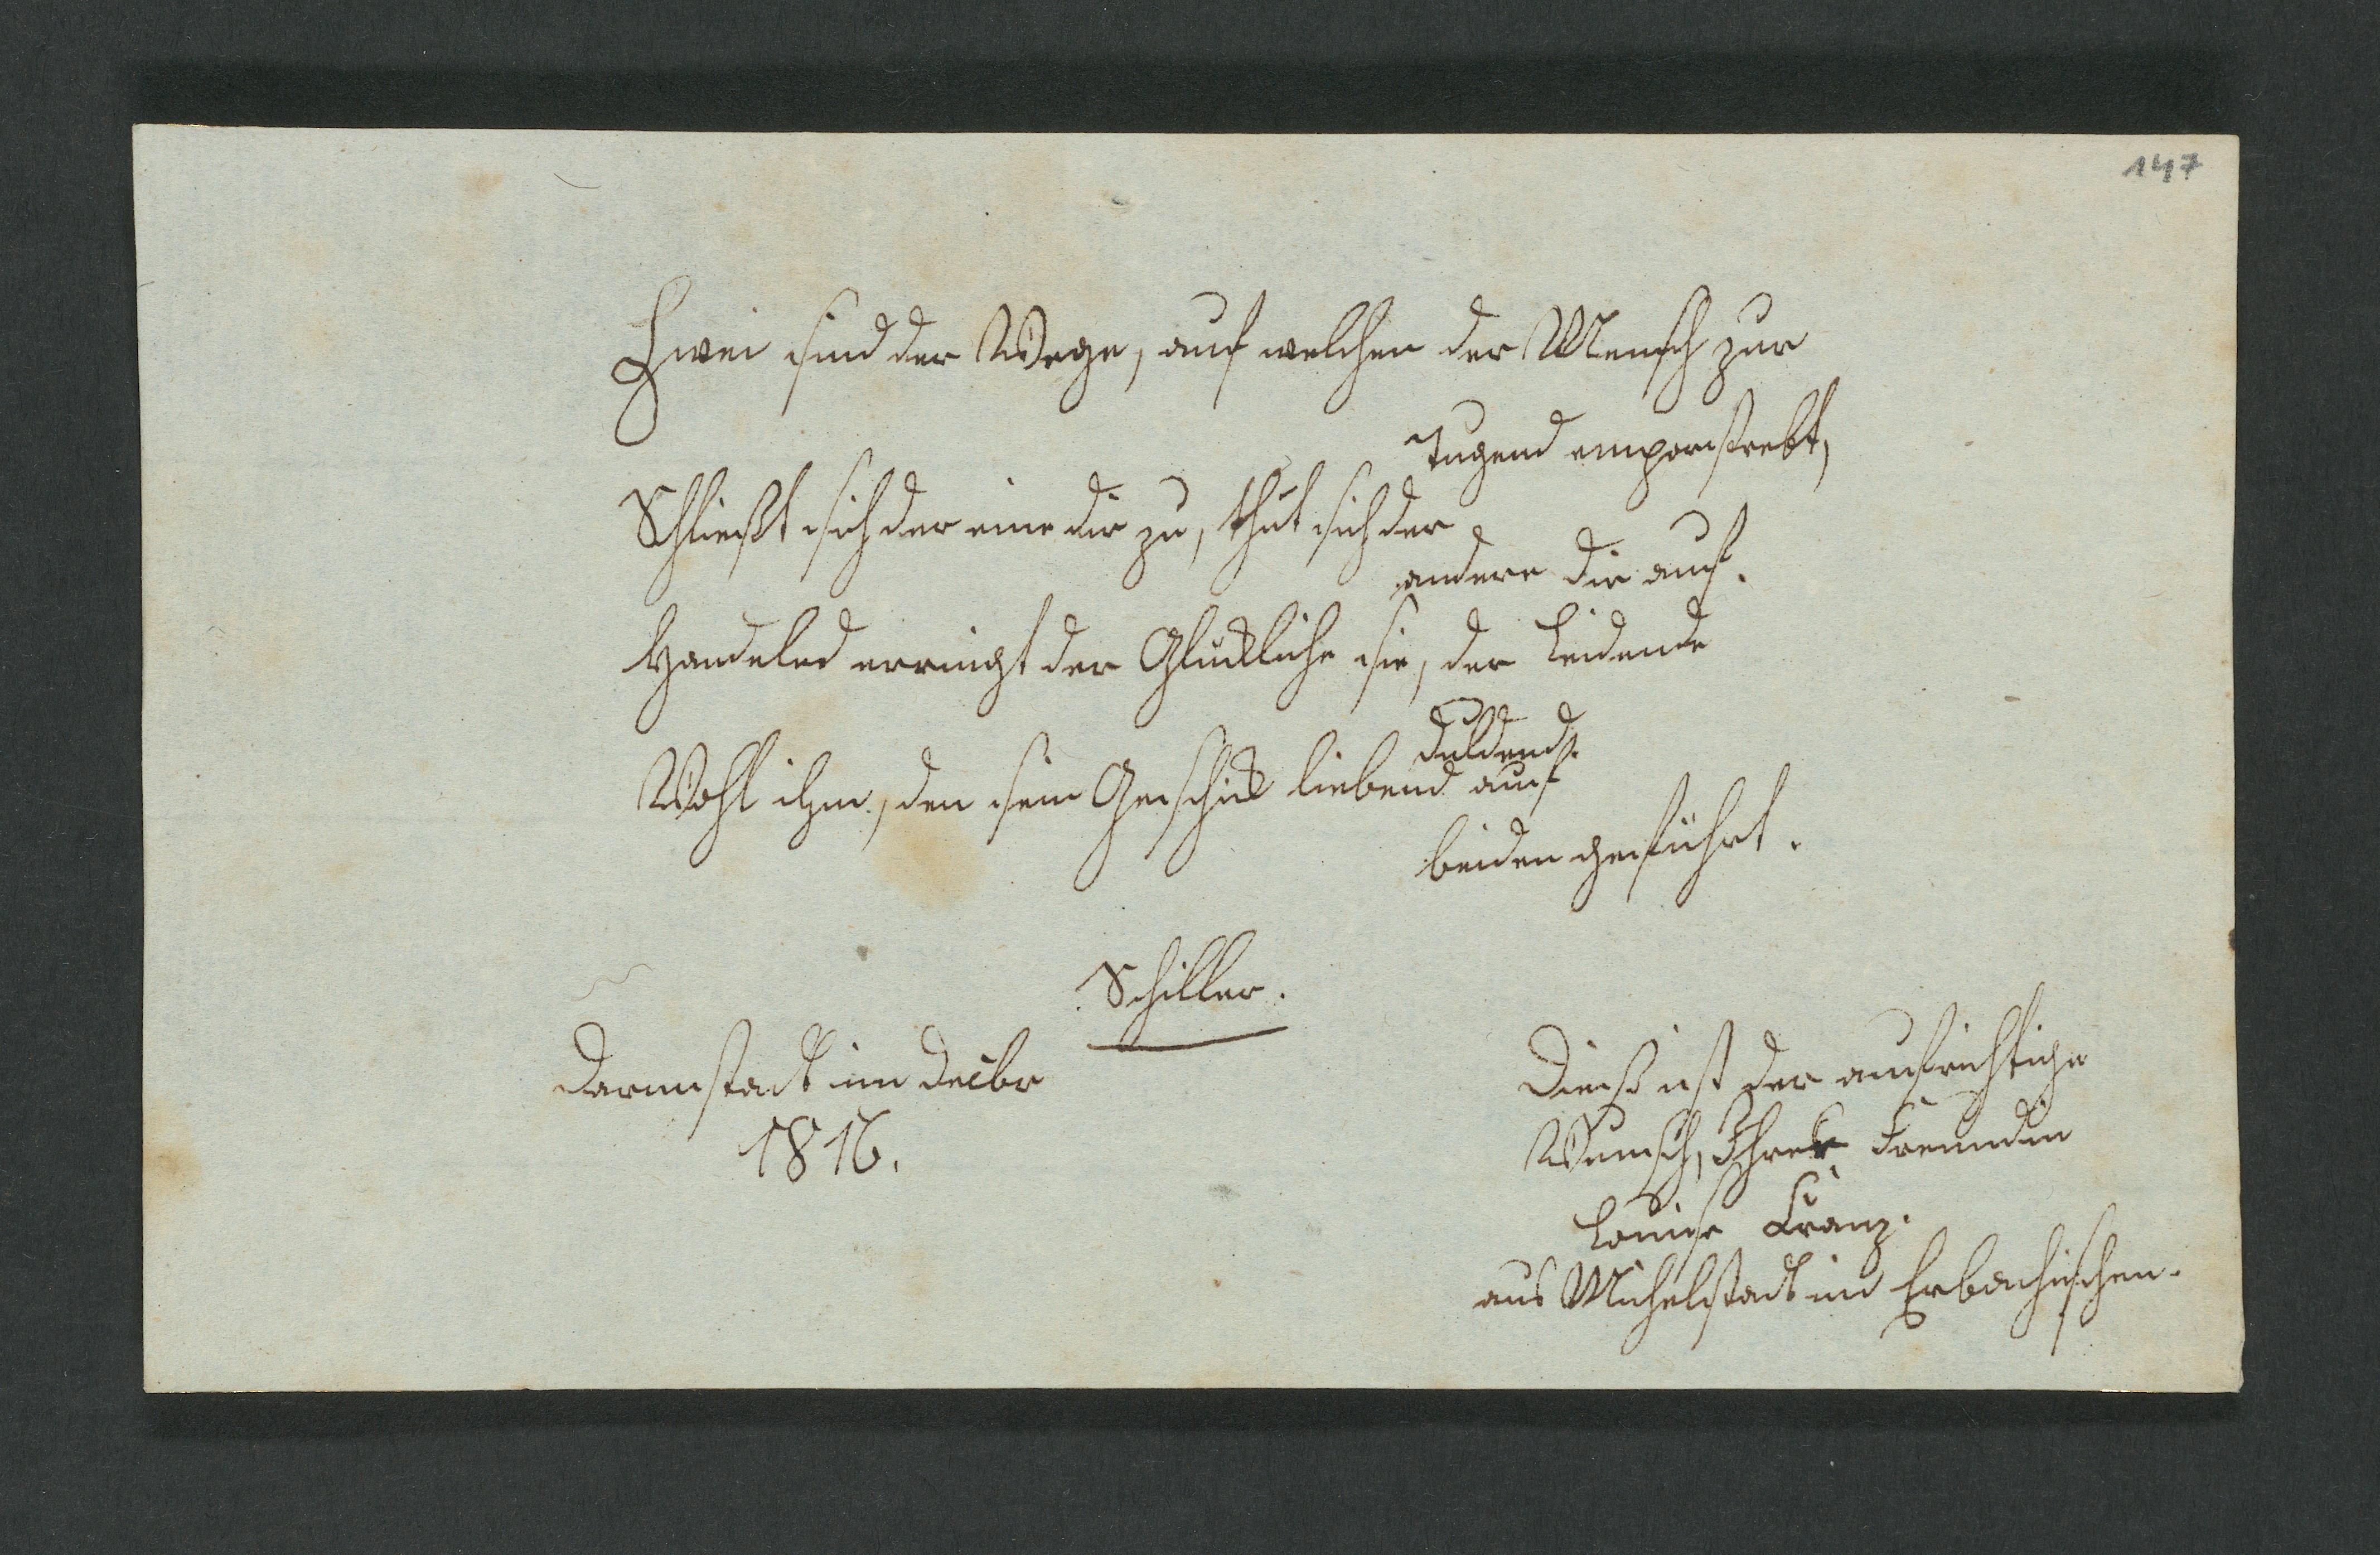 147
Zwei sind der Wege, auf welchen der Mensch zur
Tugend emporstrebt,
Schließt sich der eine dir zu, thut sich der
andere dir auf.
Handelnd erringt der Glückliche sie, der Leidende
duldend.
Wohl ihm, den sein Geschick liebend auf
beiden geführt.
Schiller.
Darmstadt im Decbr
1816.
Dieß ist der aufrichtige
Wunsch, Ihrer Freundin
Louise Kranz.
aus Michelstadt im Erbachischen.